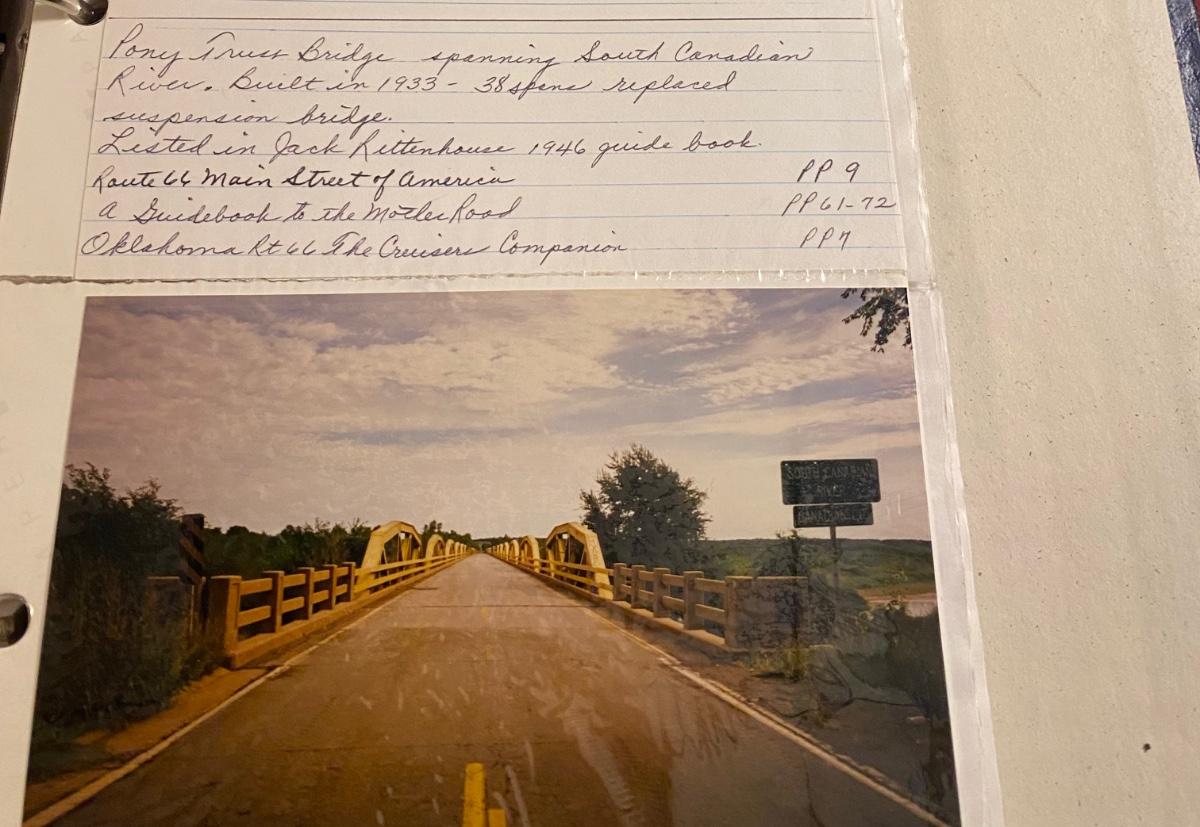 Pony Truss Bridge spanning South Canadian
River. Built in 1933 - 38 spans replaced
suspension bridge.
Listed in Jack Rittenhouse 1946 guide book.
Route 66 Main Street of America PP 9
a Guidebook to the Mother Road PP 61-72
Oklahoma Rt 66 The Cruisers Companion PP 7
SOUTH CANADIAN
RIVER